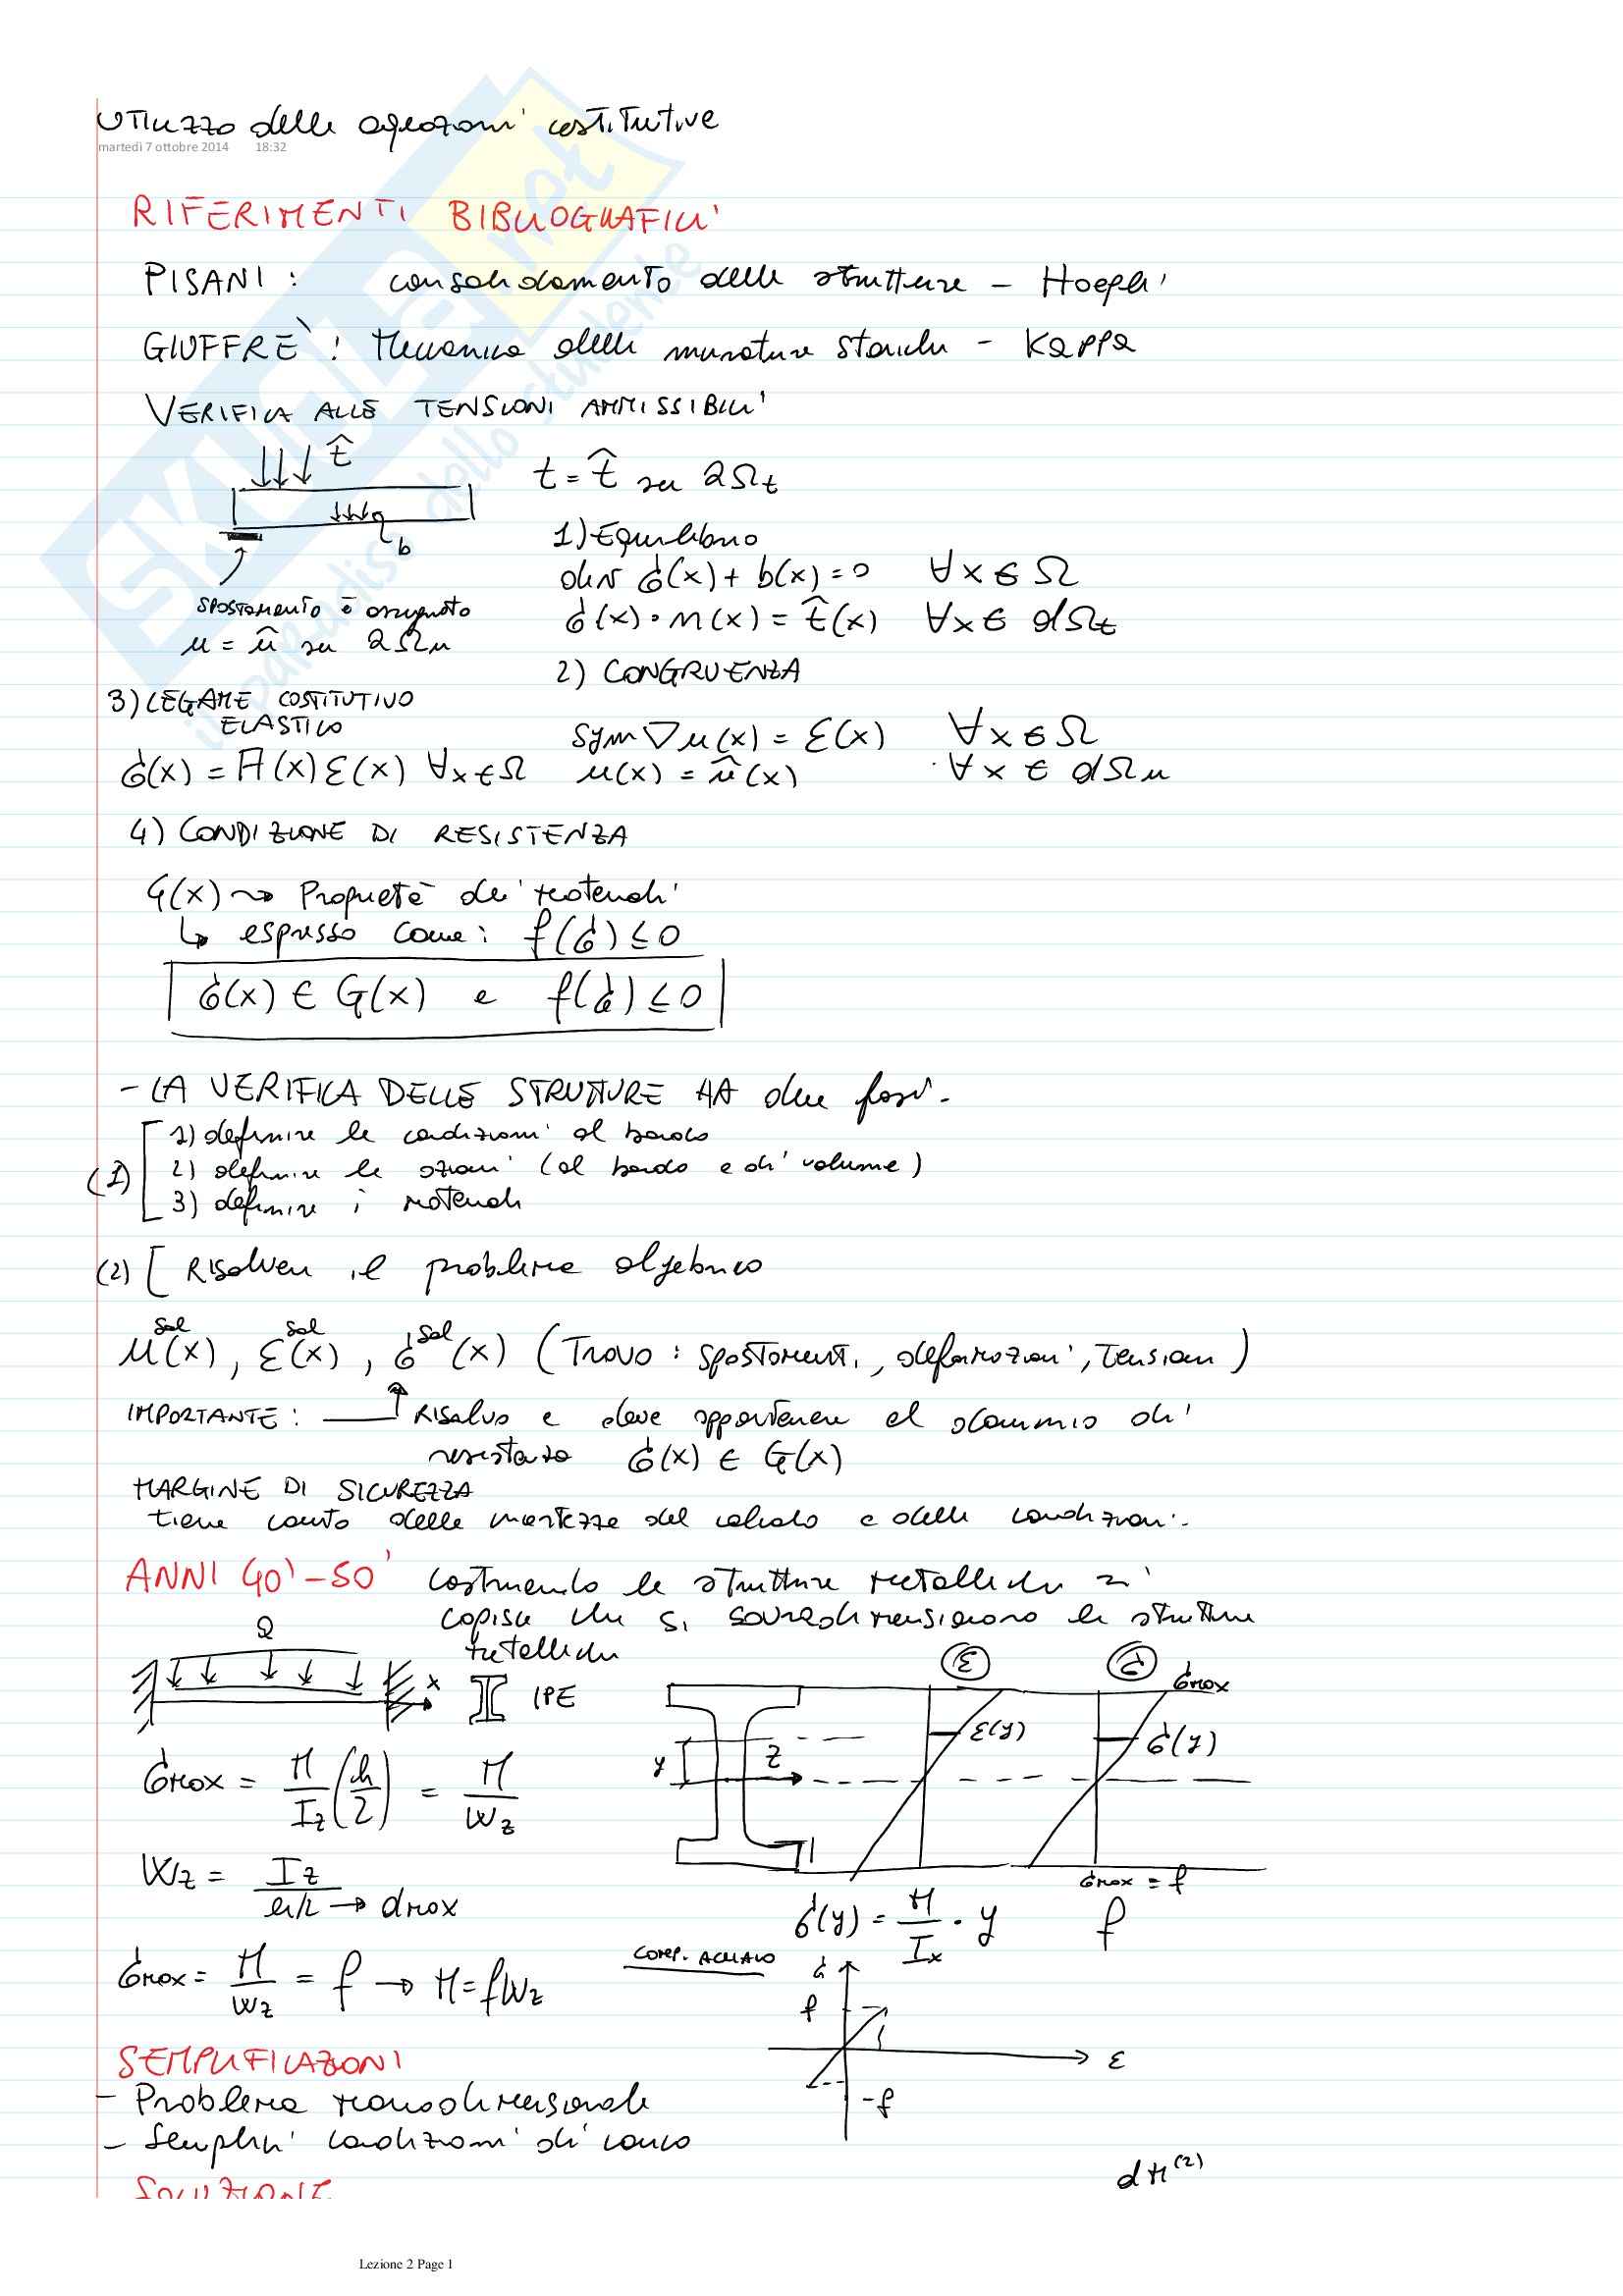 Utilizzo delle equazioni costitutive
martedì 7 ottobre 2014 18:32
RIFERIMENTI BIBLIOGRAFICI
PISANI: consolidamento delle strutture - Hoepli
GIUFFRÈ: Meccanica delle murature storiche - Kappa
VERIFICA ALLE TENSIONI AMMISSIBILI
t̂
t = t̂ su ∂Ωt
b
1) Equilibrio
div σ(x) + b(x) = 0 ∀x ∈ Ω
spostamento è assegnato
σ(x)·n(x) = t̂(x) ∀x ∈ ∂Ωt
u = û su ∂Ωu
2) CONGRUENZA
3) LEGAME COSTITUTIVO
ELASTICO
sym∇u(x) = ε(x) ∀x ∈ Ω
σ(x) = A(x)ε(x) ∀x∈Ω
u(x) = û(x) ∀x ∈ ∂Ωu
4) CONDIZIONE DI RESISTENZA
G(x) ⇝ Proprietà dei materiali
↳ espresso come: f(σ) ≤ 0
σ(x) ∈ G(x) e f(σ) ≤ 0
- LA VERIFICA DELLE STRUTTURE HA due fasi.
(1)
1) definire le condizioni al bordo
2) definire le azioni (al bordo e di volume)
3) definire i materiali
(2) [ Risolvere il problema algebrico
u^sol(x), ε^sol(x), σ^sol(x) (Trovo: spostamenti, deformazioni, tensioni)
IMPORTANTE: Risolvo e deve appartenere al dominio di
resistenza σ(x) ∈ G(x)
MARGINE DI SICUREZZA
tiene conto delle incertezze del calcolo e delle condizioni.
ANNI 40'-50' costruendo le strutture metalliche si
capisce che si sovradimensionano le strutture
metalliche
Q
x
IPE
ε
σ
σmax
y
z
ε(y)
σ(y)
σmax = M/Iz (h/2) = M/Wz
σmax = f
Wz = Iz / h/2 → dmax
σ(y) = M/Ix · y f
σmax = M/Wz = f → M = fWz
COMP. ACCIAIO
σ
f
ε
-f
SEMPLIFICAZIONI
- Problema monodimensionale
- Semplici condizioni di carico
dM(2)
SOLUZIONE
Lezione 2 Page 1
SKUOLA.not
il paradiso dello studente